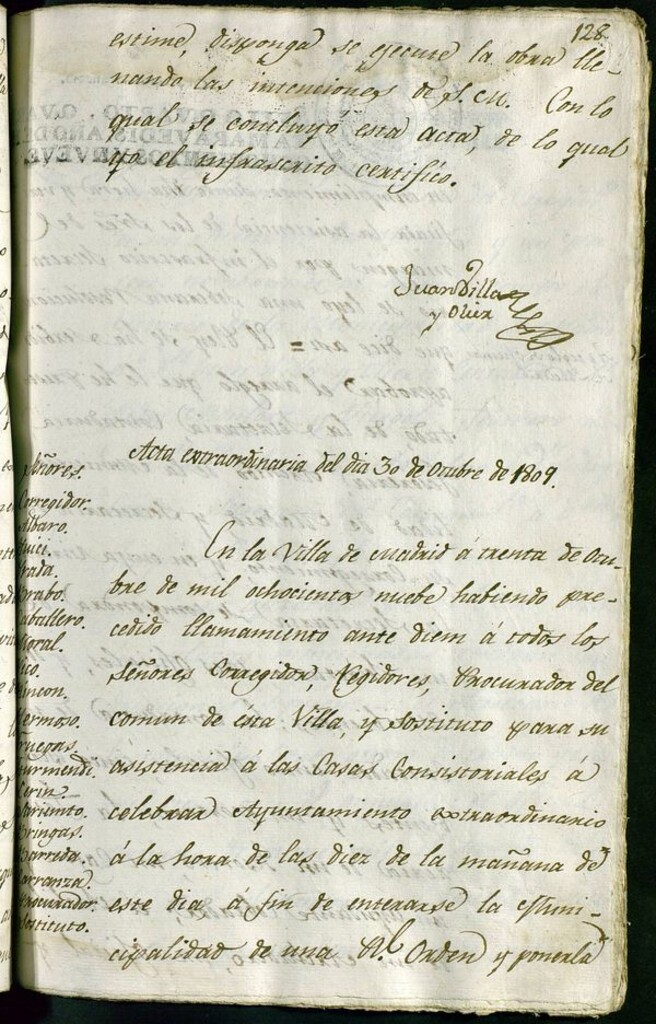 128
estime, disponga se egecute la obra lle-
nando las intenciones de S. M. Con lo
qual se concluyó esta acta, de lo qual
yo el infrascrito certifico.
Juan Villa
y Olier
Acta extraordinaria del dia 30 de Octubre de 1809.
Señores.
Corregidor.
Albaro.
Prada.
Caballero.
Moral.
Rincon.
Hermoso.
Gurmendi.
Bringas.
Barreda.
Carranza.
Procurador.
Sostituto.
En la Villa de Madrid á treinta de Octu-
bre de mil ochocientos nuebe habiendo pre-
cedido llamamiento ante diem á todos los
señores Corregidor, Regidores, Procurador del
comun de esta Villa, y Sostituto para su
asistencia á las Casas Consistoriales á
celebrar Ayuntamiento extraordinario
á la hora de las diez de la mañana de
este dia á fin de enterarse la Muni-
cipalidad de una Rl. Orden y ponerla